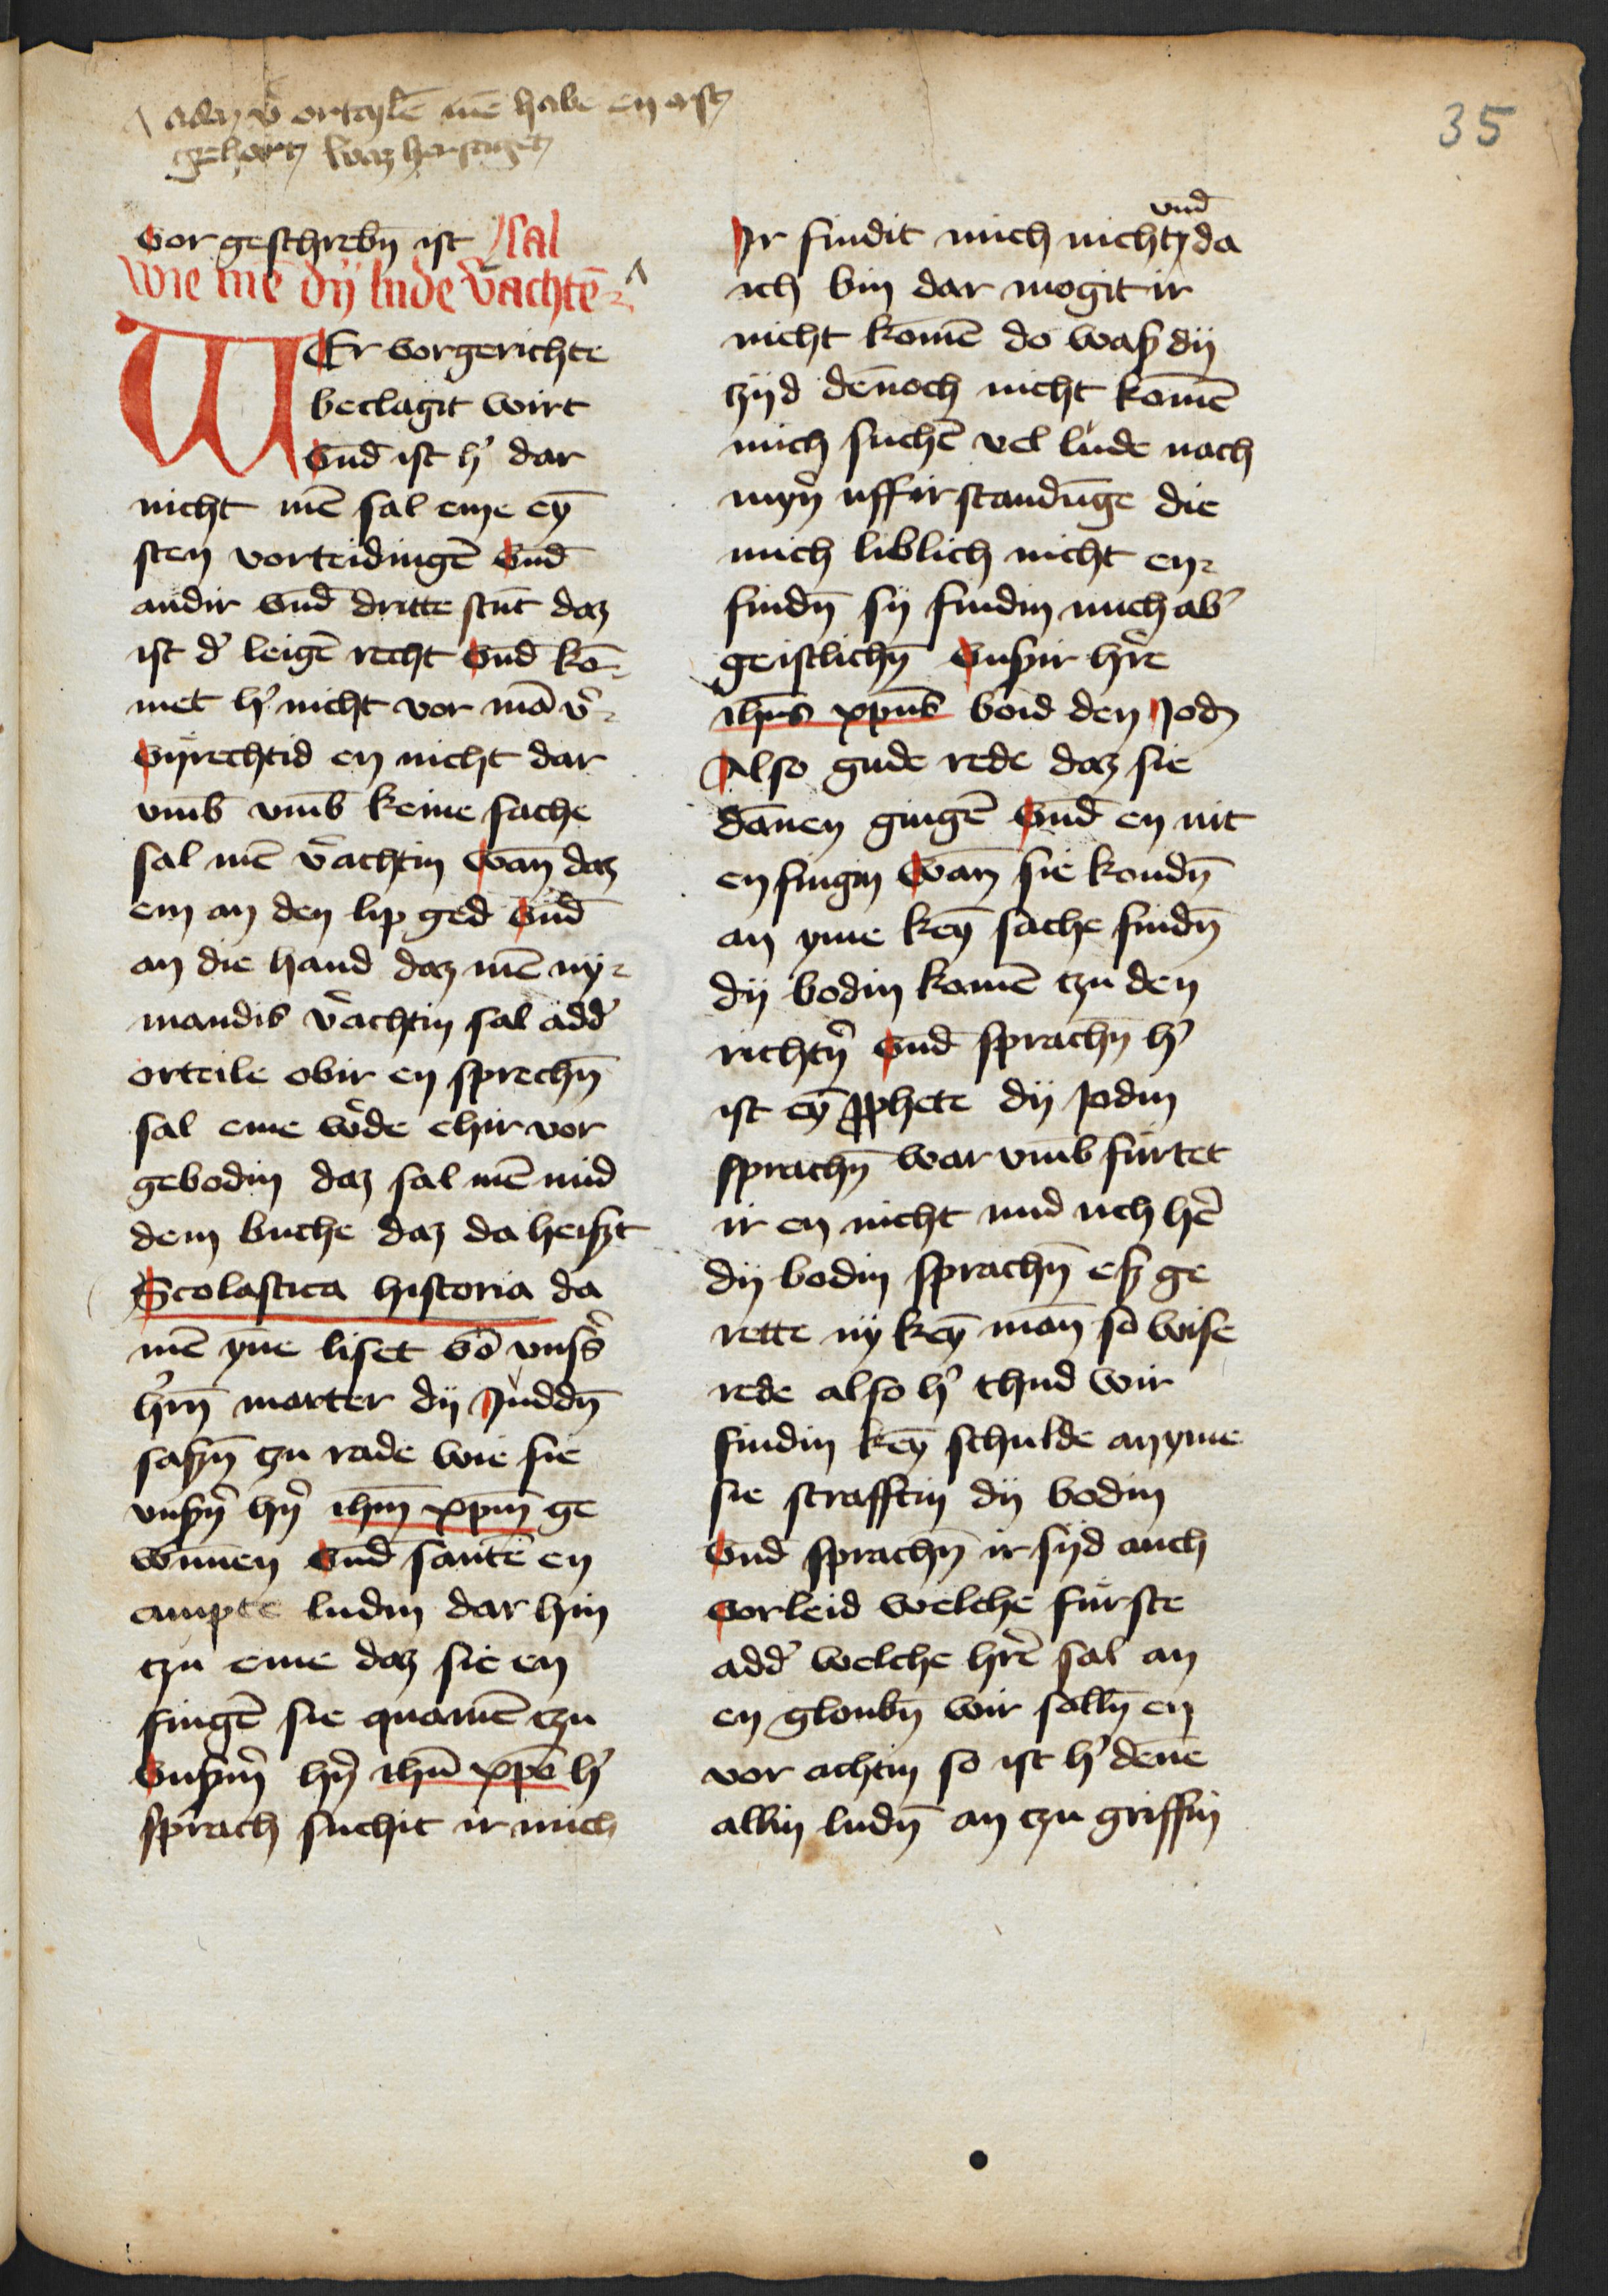 adir v̾ortaylē mē habe en erstͤ
gehortͤ waz her sagetͤ
35
vor geschrebn̄ ist sal
wie mē dij lude v̾achtē
WEr vorgerichte
beclagit wirt
vnd̄ ist h̾ dar
nicht mē sal eme eȳ
sten vorteidingē vnd̄
andir vnd̄ dritte stūt daz
ist d̾ leigē recht vnd̄ kō
met h̾ nicht vor mā v̾
vijrechtid en nicht dar
vm̄b vm̄b keine sache
sal mē v̾achtin wan̄ daz
em an den lip ged vnd̄
an die hand daz mē ny
mandis v̾achtin sal add̾
orteile obir en sprechn̄
sal eme w̾de ehir vor
gebodin daz sal mē mid
dem buche daz da heiszt
Scolastica historia da
mē yn̄e liset vō vns̾s
h̾rn̄ marter dij Juddn̄
saszn̄ tzu rade wie sie
vnszn̾ hn̾ ihm̄ xpm̄ ge
wūnen vnd̄ santē en
ampte ludin dar hin
tzu eme daz sie en
fingē sie quamē tzu
vnszm̾ hn̾ ihū xpō h̾
sprach suchit ir mich
Ir findit mich nicht vnd̄ da
ich bin dar mogit ir
nicht komē do wasz dij
tzijd dēnoch nicht komē
mich suchē vel lude nach
myn̾ uffirstandūge die
mich liblich nicht en
findn̄ sij findin mich ab̾
geistlichn̄ vnszir hr̾e
ihūs xpūs boid den Jodͤ
Also gude rede daz sie
dānen gingē vnd̄ en nit
en fingin wan̄ sie kondn̄
an yme keȳ sache findn̄
dij bodin kamē tzu den
richtn̾ vnd̄ sprachn̄ h̾
ist eȳ ꝓphete dij Jodin
sprachn̄ war vm̄b furtet
ir en nicht mid uch hē
dij bodin sprachn̄ esz ge
rette nij keȳ man̄ so wise
rede also h̾ thud wir
findin keȳ schulde an yme
sie strafftin dij bodin
vnd̄ sprachn̄ ir sijd auch
vorleid welche furste
add̾ welche hr̾e sal an
en gloubn̄ wir solln̄ en
vor achtin so ist h̾ denē
allin ludn̄ an tzu griffin